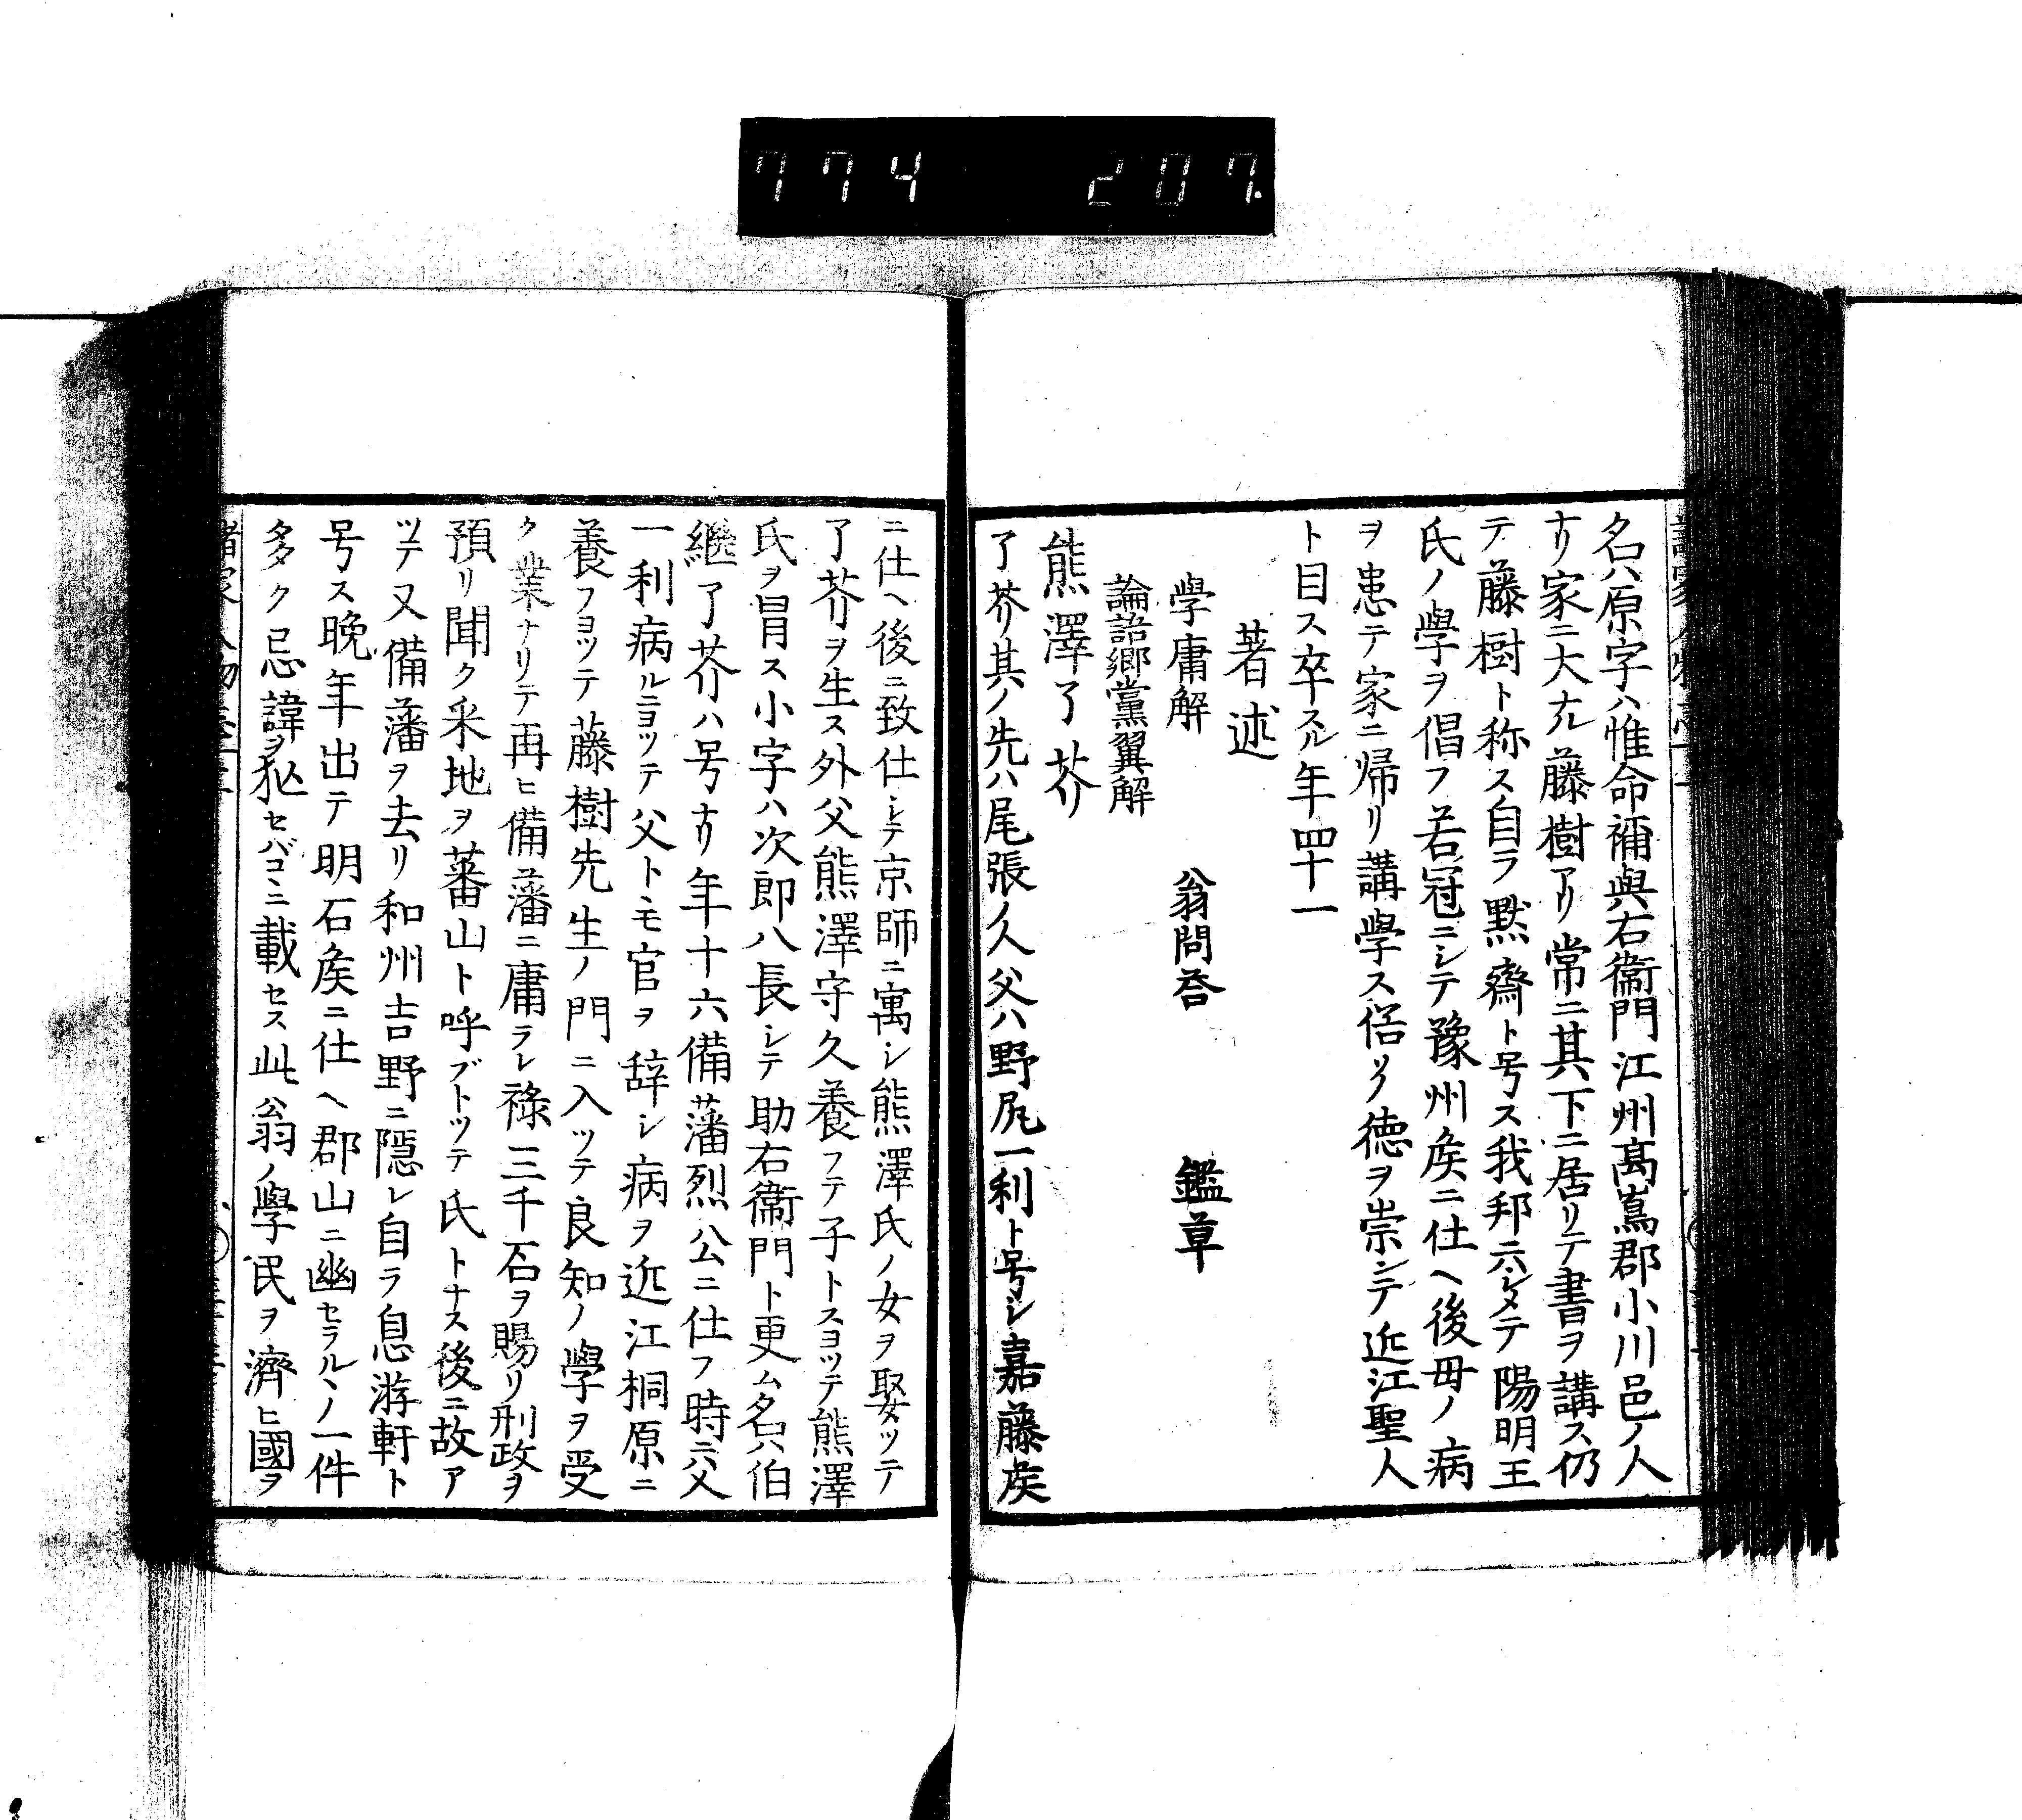 774 207.
名ハ原字ハ惟命補與右衞門江州髙嶌郡小川邑ノ人
ナリ家ニ大ナル藤樹アリ常ニ其下ニ居リテ書ヲ講ス仍
テ藤樹ト称ス自ラ黙齋ト号ス我邦ニハシメテ陽明王
氏ノ學ヲ倡フ若冠ニシテ豫州矦ニ仕ヘ後毋ノ病
ヲ患テ家ニ帰リ講學ス俗ソノ徳ヲ崇ンテ近江聖人
ト目ス卒スル年四十一
著述
學庸解 翁問荅 鑑草
論語郷黨翼解
熊澤了芥
了芥其ノ先ハ尾張ノ人父ハ野尻一利ト号シ嘉藤矦
ニ仕ヘ後ニ致仕シテ京師ニ寓シ熊澤氏ノ女ヲ娶ツテ
了芥ヲ生ス外父熊澤守久養フテ子トスヨツテ熊澤
氏ヲ冒ス小字ハ次郎八長シテ助右衞門ト更ム名ハ伯
繼了芥ハ号ナリ年十六備藩烈公ニ仕フ時ニ父
一利病ルニヨツテ父トモ官ヲ辞シ病ヲ近江桐原ニ
養フヨツテ藤樹先生ノ門ニ入ツテ良知ノ學ヲ受
ク業ナリテ再ヒ備藩ニ庸ラレ禄三千石ヲ賜リ刑政ヲ
預リ聞ク采地ヲ蕃山ト呼ブトツテ氏トナス後ニ故ア
ツテ又備藩ヲ去リ和州吉野ニ隠レ自ラ息游軒ト
号ス晩年出テ明石矦ニ仕ヘ郡山ニ幽セラルヽノ一件
多ク忌諱ヲ犯セバコヽニ載セス此翁ノ學民ヲ濟ヒ國ヲ